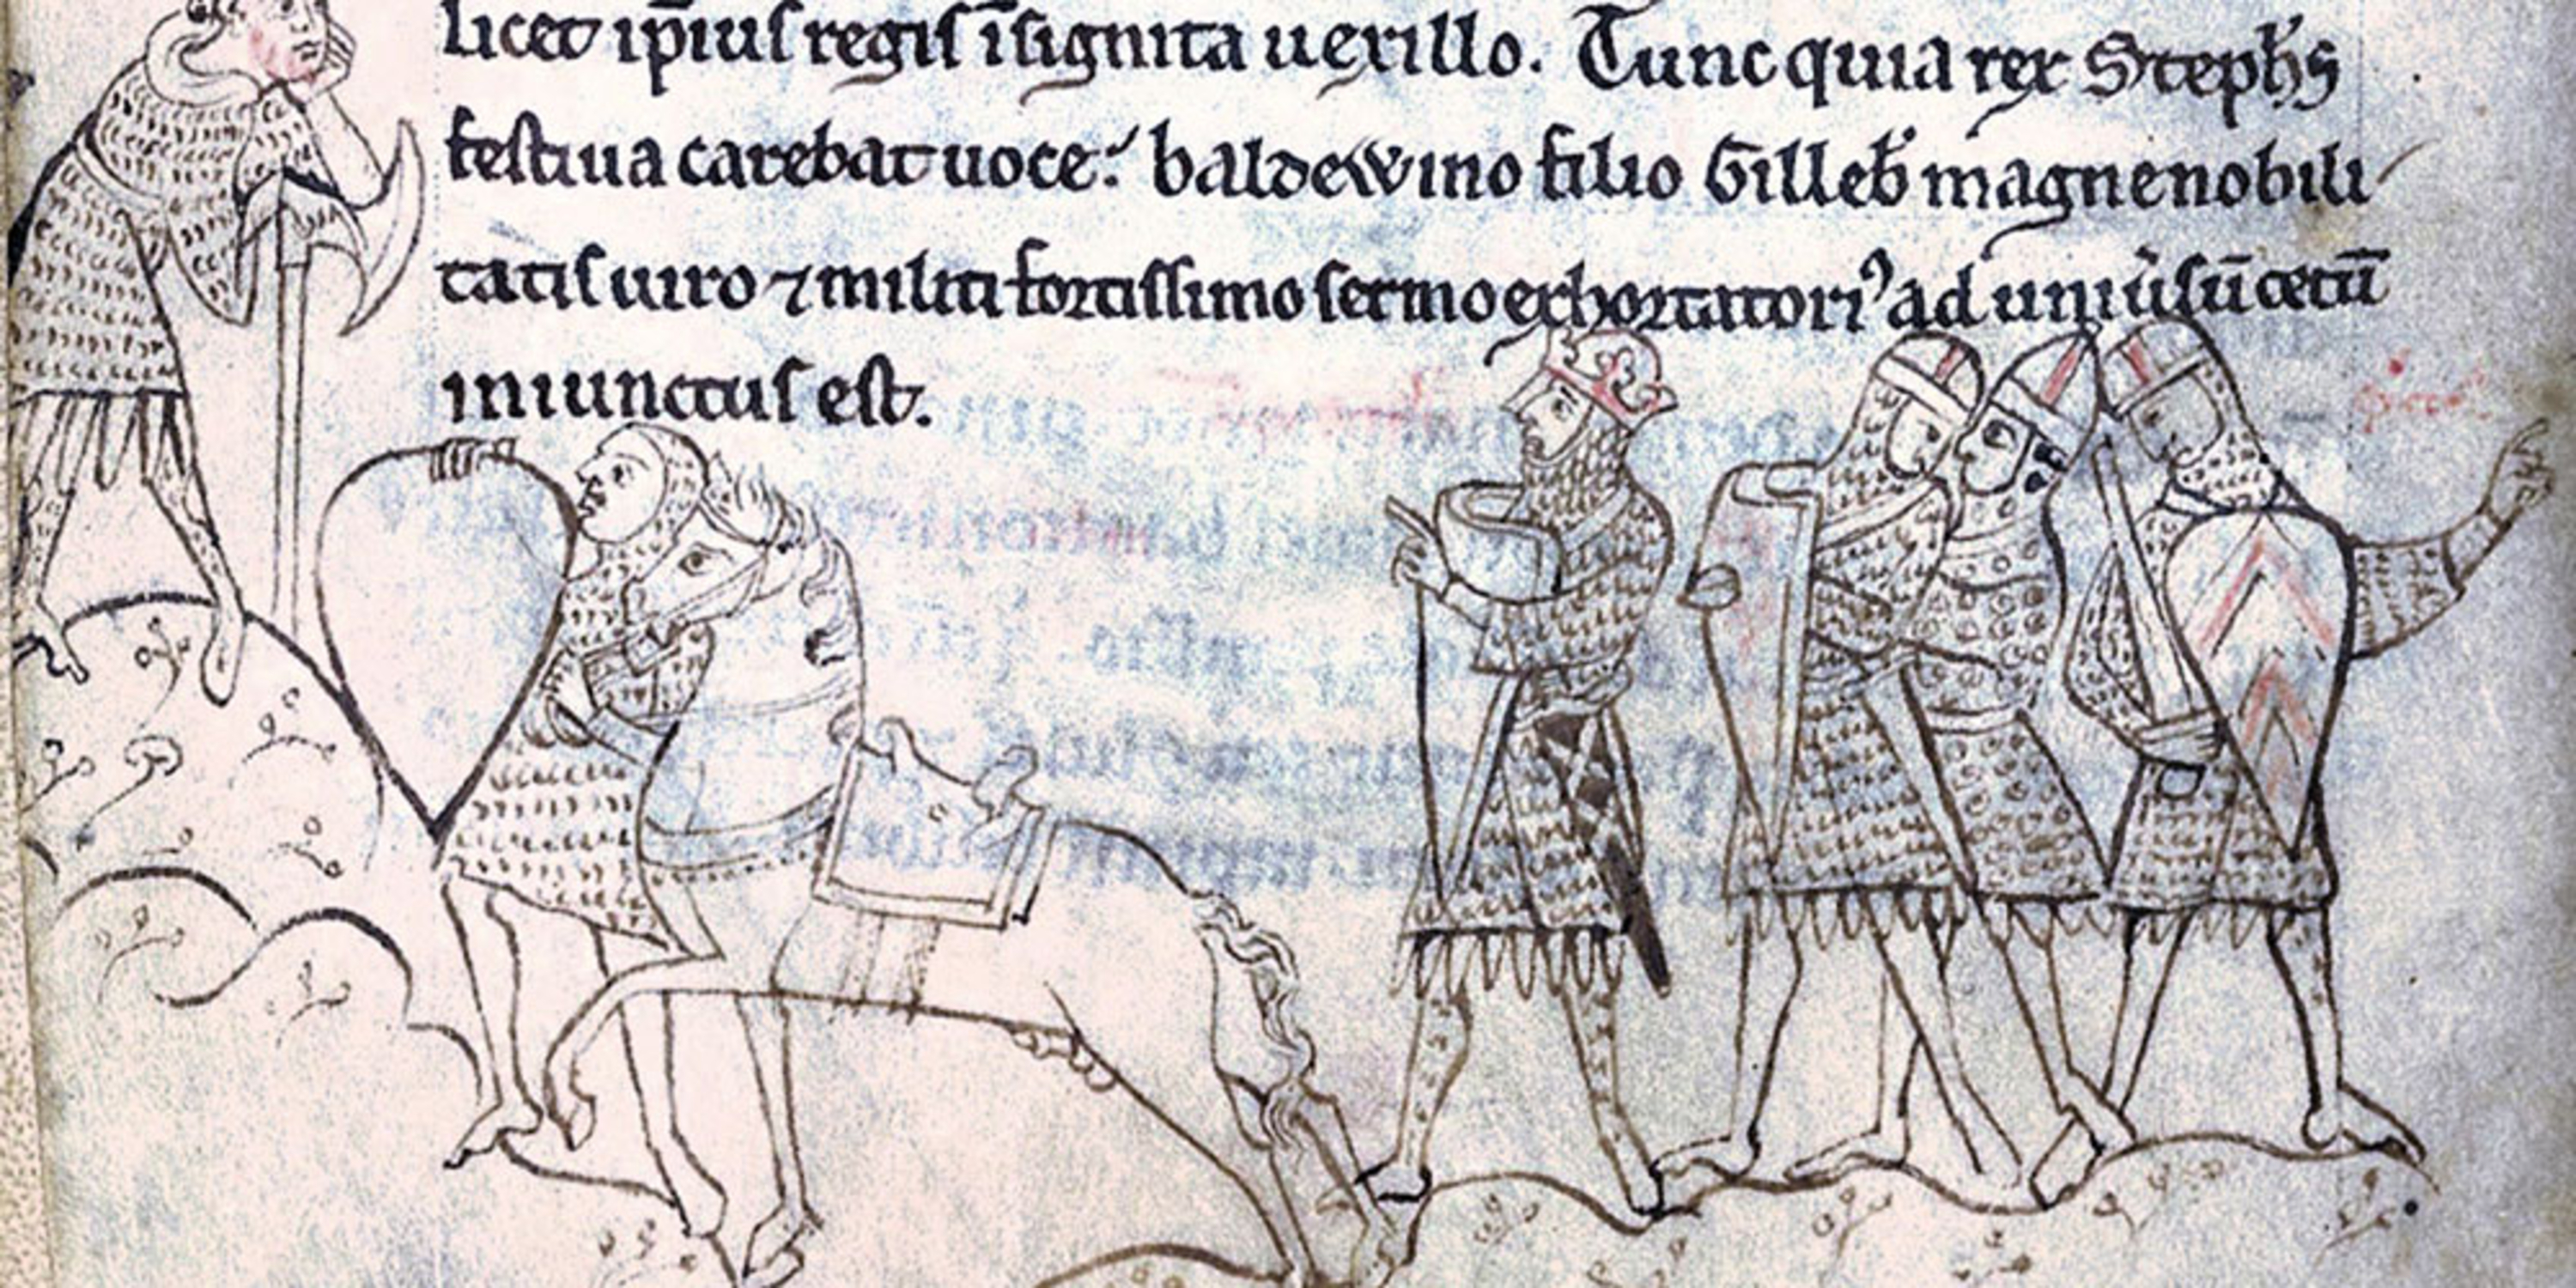 licet ip̄ius regis īsignita uexillo. Tunc quia rex Stephs̄
festiua carebat uoce. baldewino filio Gilleb̄ magne nobili
tatis uiro ⁊ militi fortissimo sermo exhortatoriꝰ ad uniu̾sū cetū
iniunctus est.